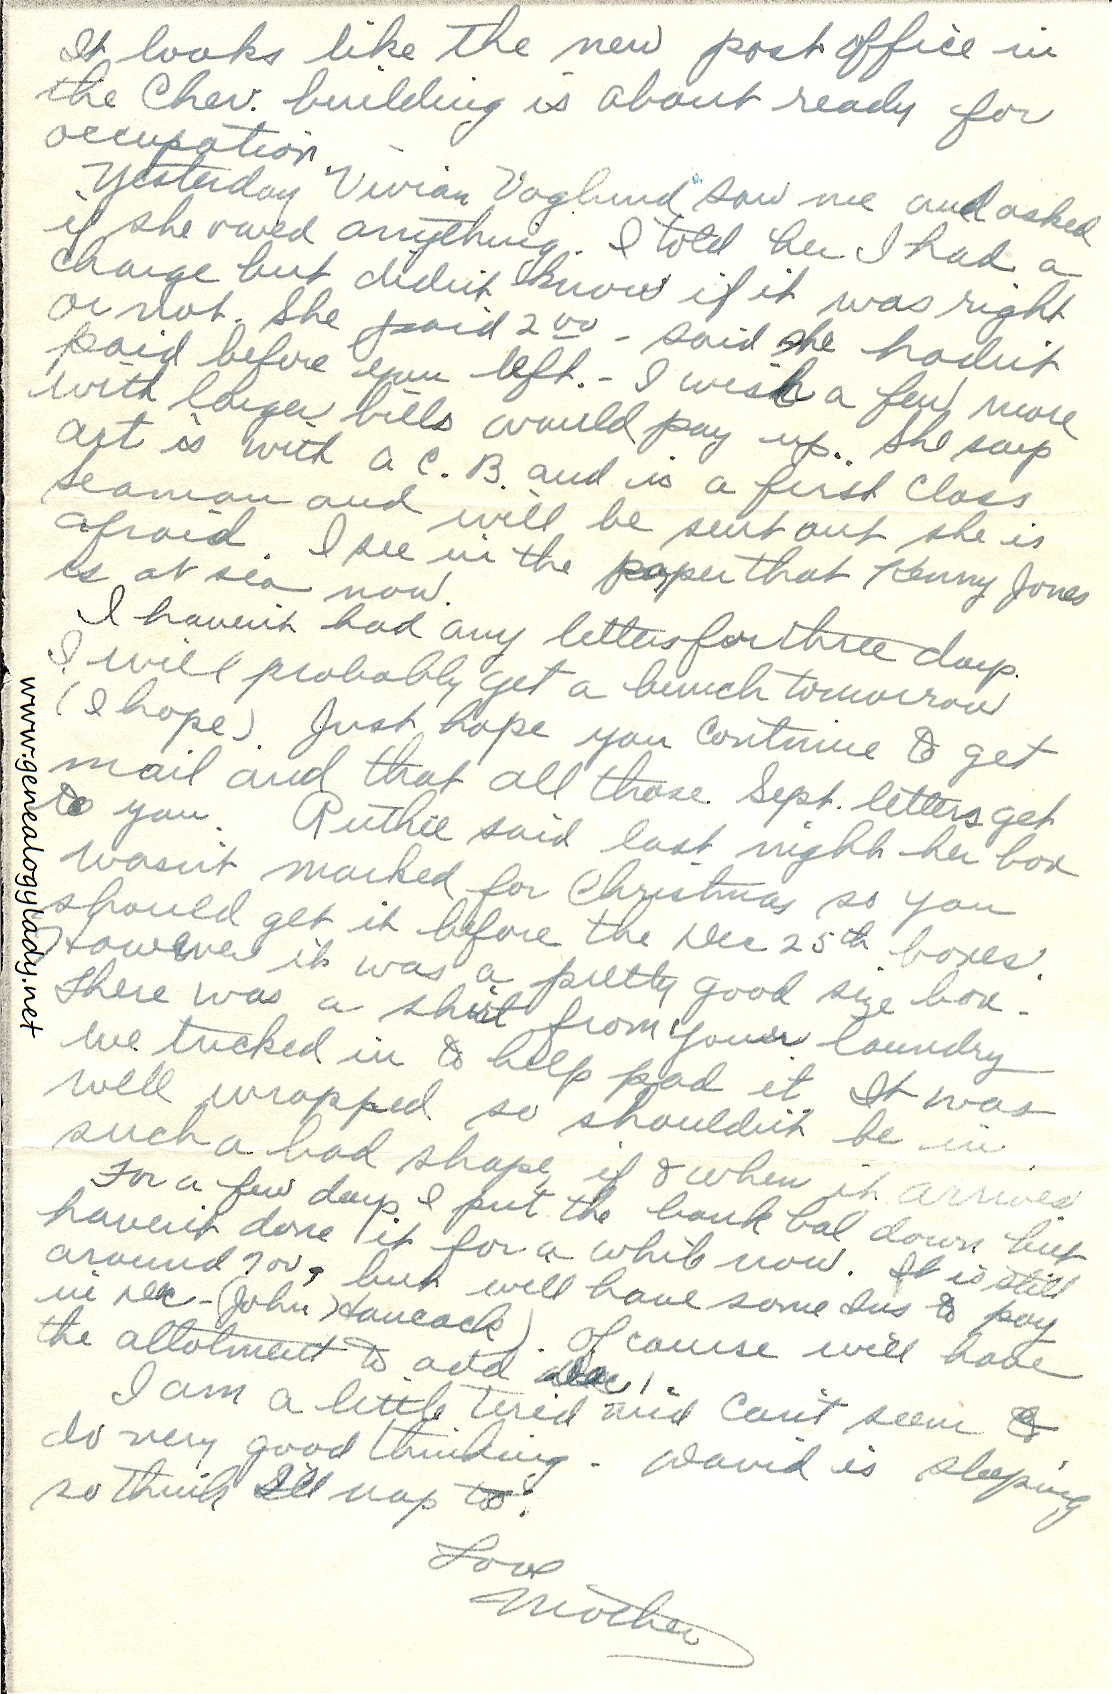 It looks like the new post office in
the Chev. building is about ready for
occupation.
Yesterday Vivian Voglund saw me and asked
if she owed anything. I told her I had a
charge but didn't know if it was right
or not. She paid 2 00 - said she hadn't
paid before you left. - I wish a few more
with larger bills would pay up. She says
Art is with a C. B. and is a first class
seaman and will be sent out she is
afraid. I see in the paper that Kenny Jones
is at sea now.
I haven't had any letters for three days.
I will probably get a bunch tomorrow
(I hope). Just hope you continue to get
mail and that all those Sept. letters get
to you. Ruthie said last night her box
wasn't marked for Christmas so you
should get it before the Dec 25th boxes.
However it was a pretty good size box -
There was a shirt from your laundry
we tucked in to help pad it. It was
well wrapped so shouldn't be in
such a bad shape, if & when it arrives
For a few days I put the bank bal down but
haven't done it for a while now. It is still
around 700, but will have some Ins to pay
in Dec - (John Hancock). Of course will have
the allotment to add Dec 1.
I am a little tired and can't seem to
do very good thinking - David is sleeping
so think I'll nap to.
Love
Mother
www.genealogylady.net